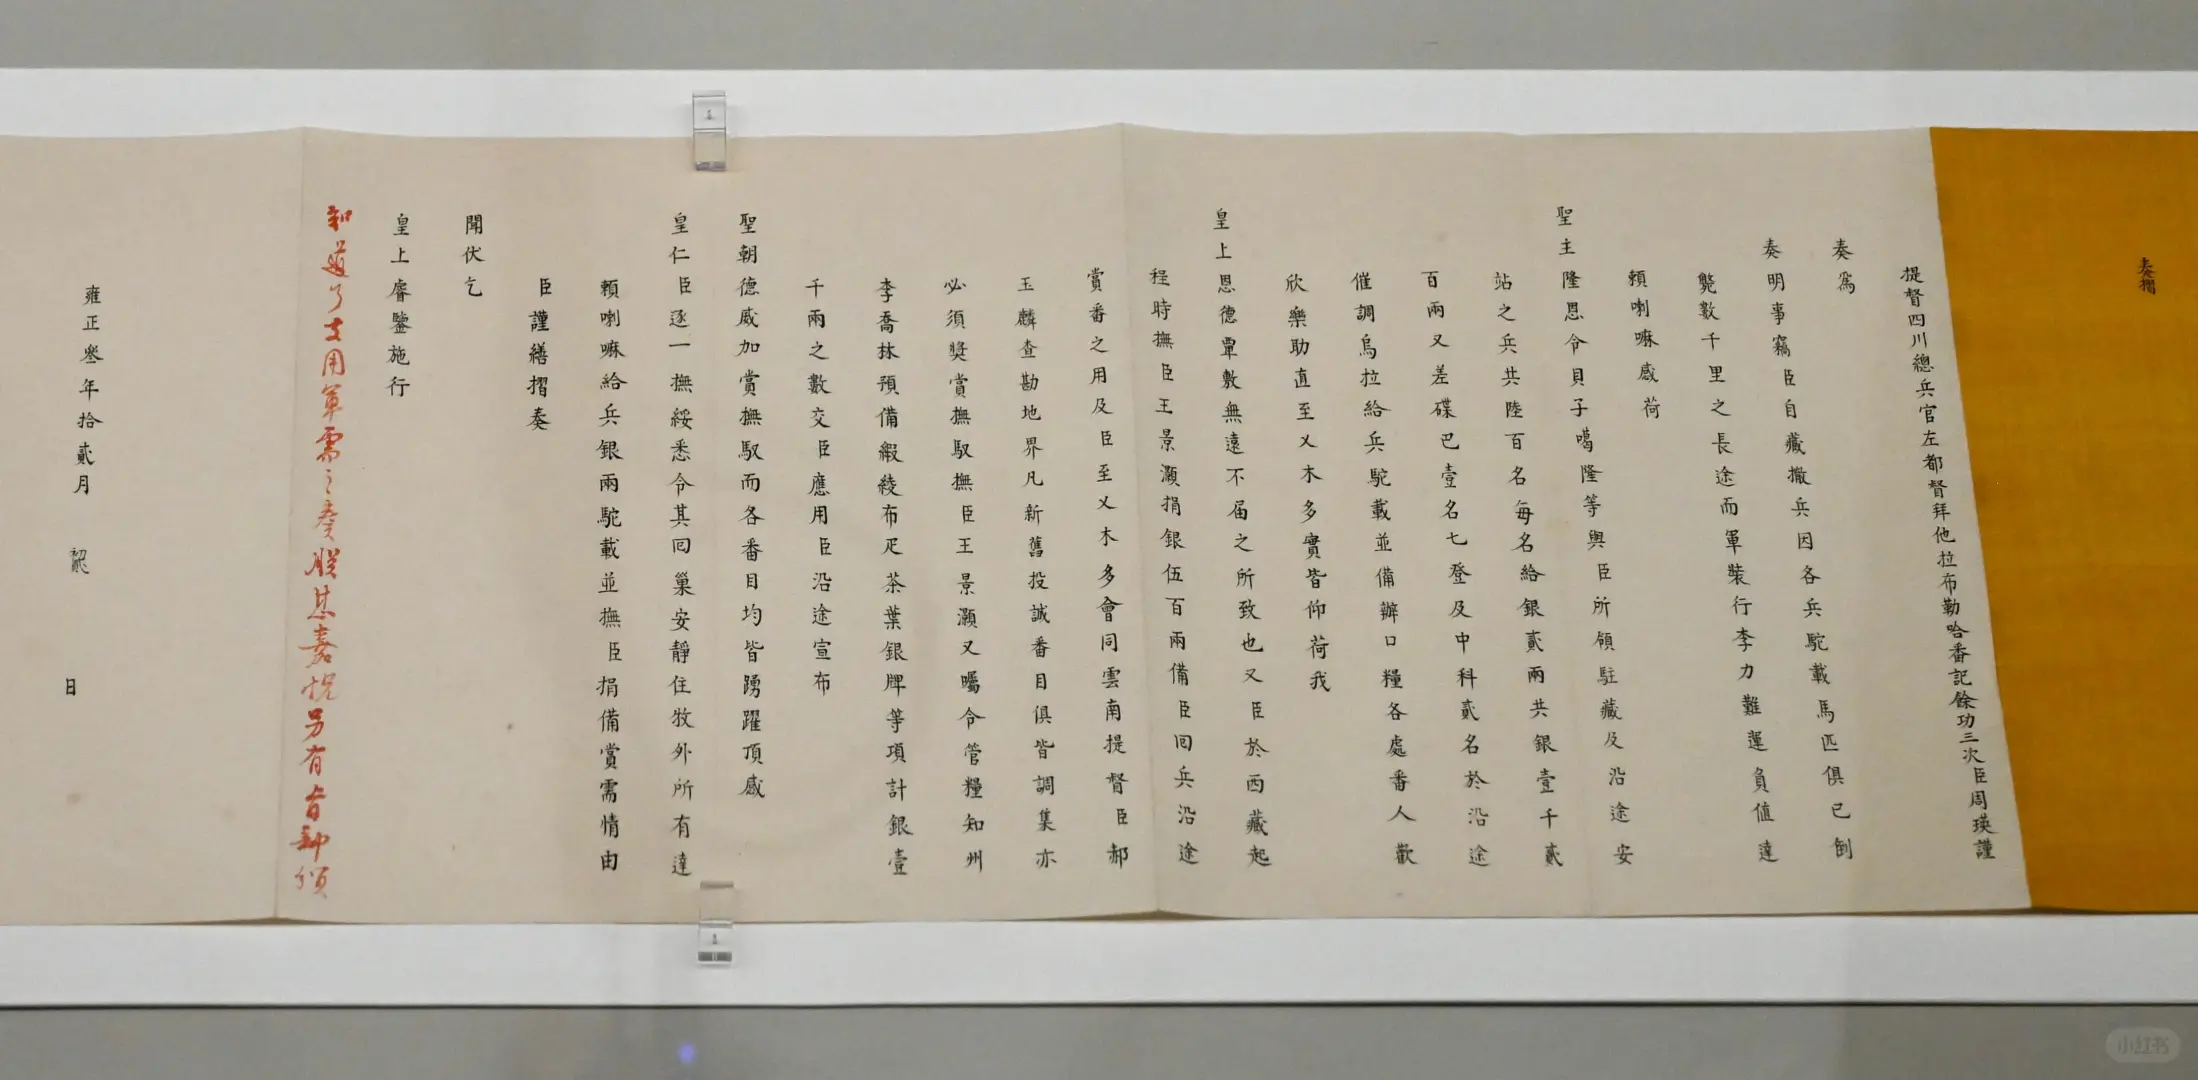 奏摺
提督四川總兵官左都督拜他拉布勒哈番記餘功三次臣周瑛謹
奏爲
奏明事竊臣自藏撤兵因各兵駝載馬匹俱已倒
斃數千里之長途而軍裝行李力難運負値達
賴喇嘛感荷
聖主隆恩令貝子噶隆等與臣所領駐藏及沿途安
站之兵共陸百名每名給銀貳兩共銀壹千貳
百兩又差碟巴壹名七登及中科貳名於沿途
催調烏拉給兵駝載並備辦口糧各處番人歡
欣樂助直至乂木多實皆仰荷我
皇上恩德覃敷無遠不届之所致也又臣於西藏起
程時撫臣王景灝捐銀伍百兩備臣回兵沿途
賞番之用及臣至乂木多會同雲南提督臣郝
玉麟查勘地界凡新舊投誠番目俱皆調集亦
必須獎賞撫馭撫臣王景灝又囑令管糧知州
李喬林預備緞綾布疋茶葉銀牌等項計銀壹
千兩之數交臣應用臣沿途宣布
聖朝德威加賞撫馭而各番目均皆踴躍頂感
皇仁臣逐一撫綏悉令其回巢安靜住牧外所有達
賴喇嘛給兵銀兩駝載並撫臣捐備賞需情由
臣謹繕摺奏
聞伏乞
皇上睿鑒施行
知道了支用軍需之奏朕甚嘉悅另有旨部頒
雍正叁年拾貳月 初貳 日
小红书